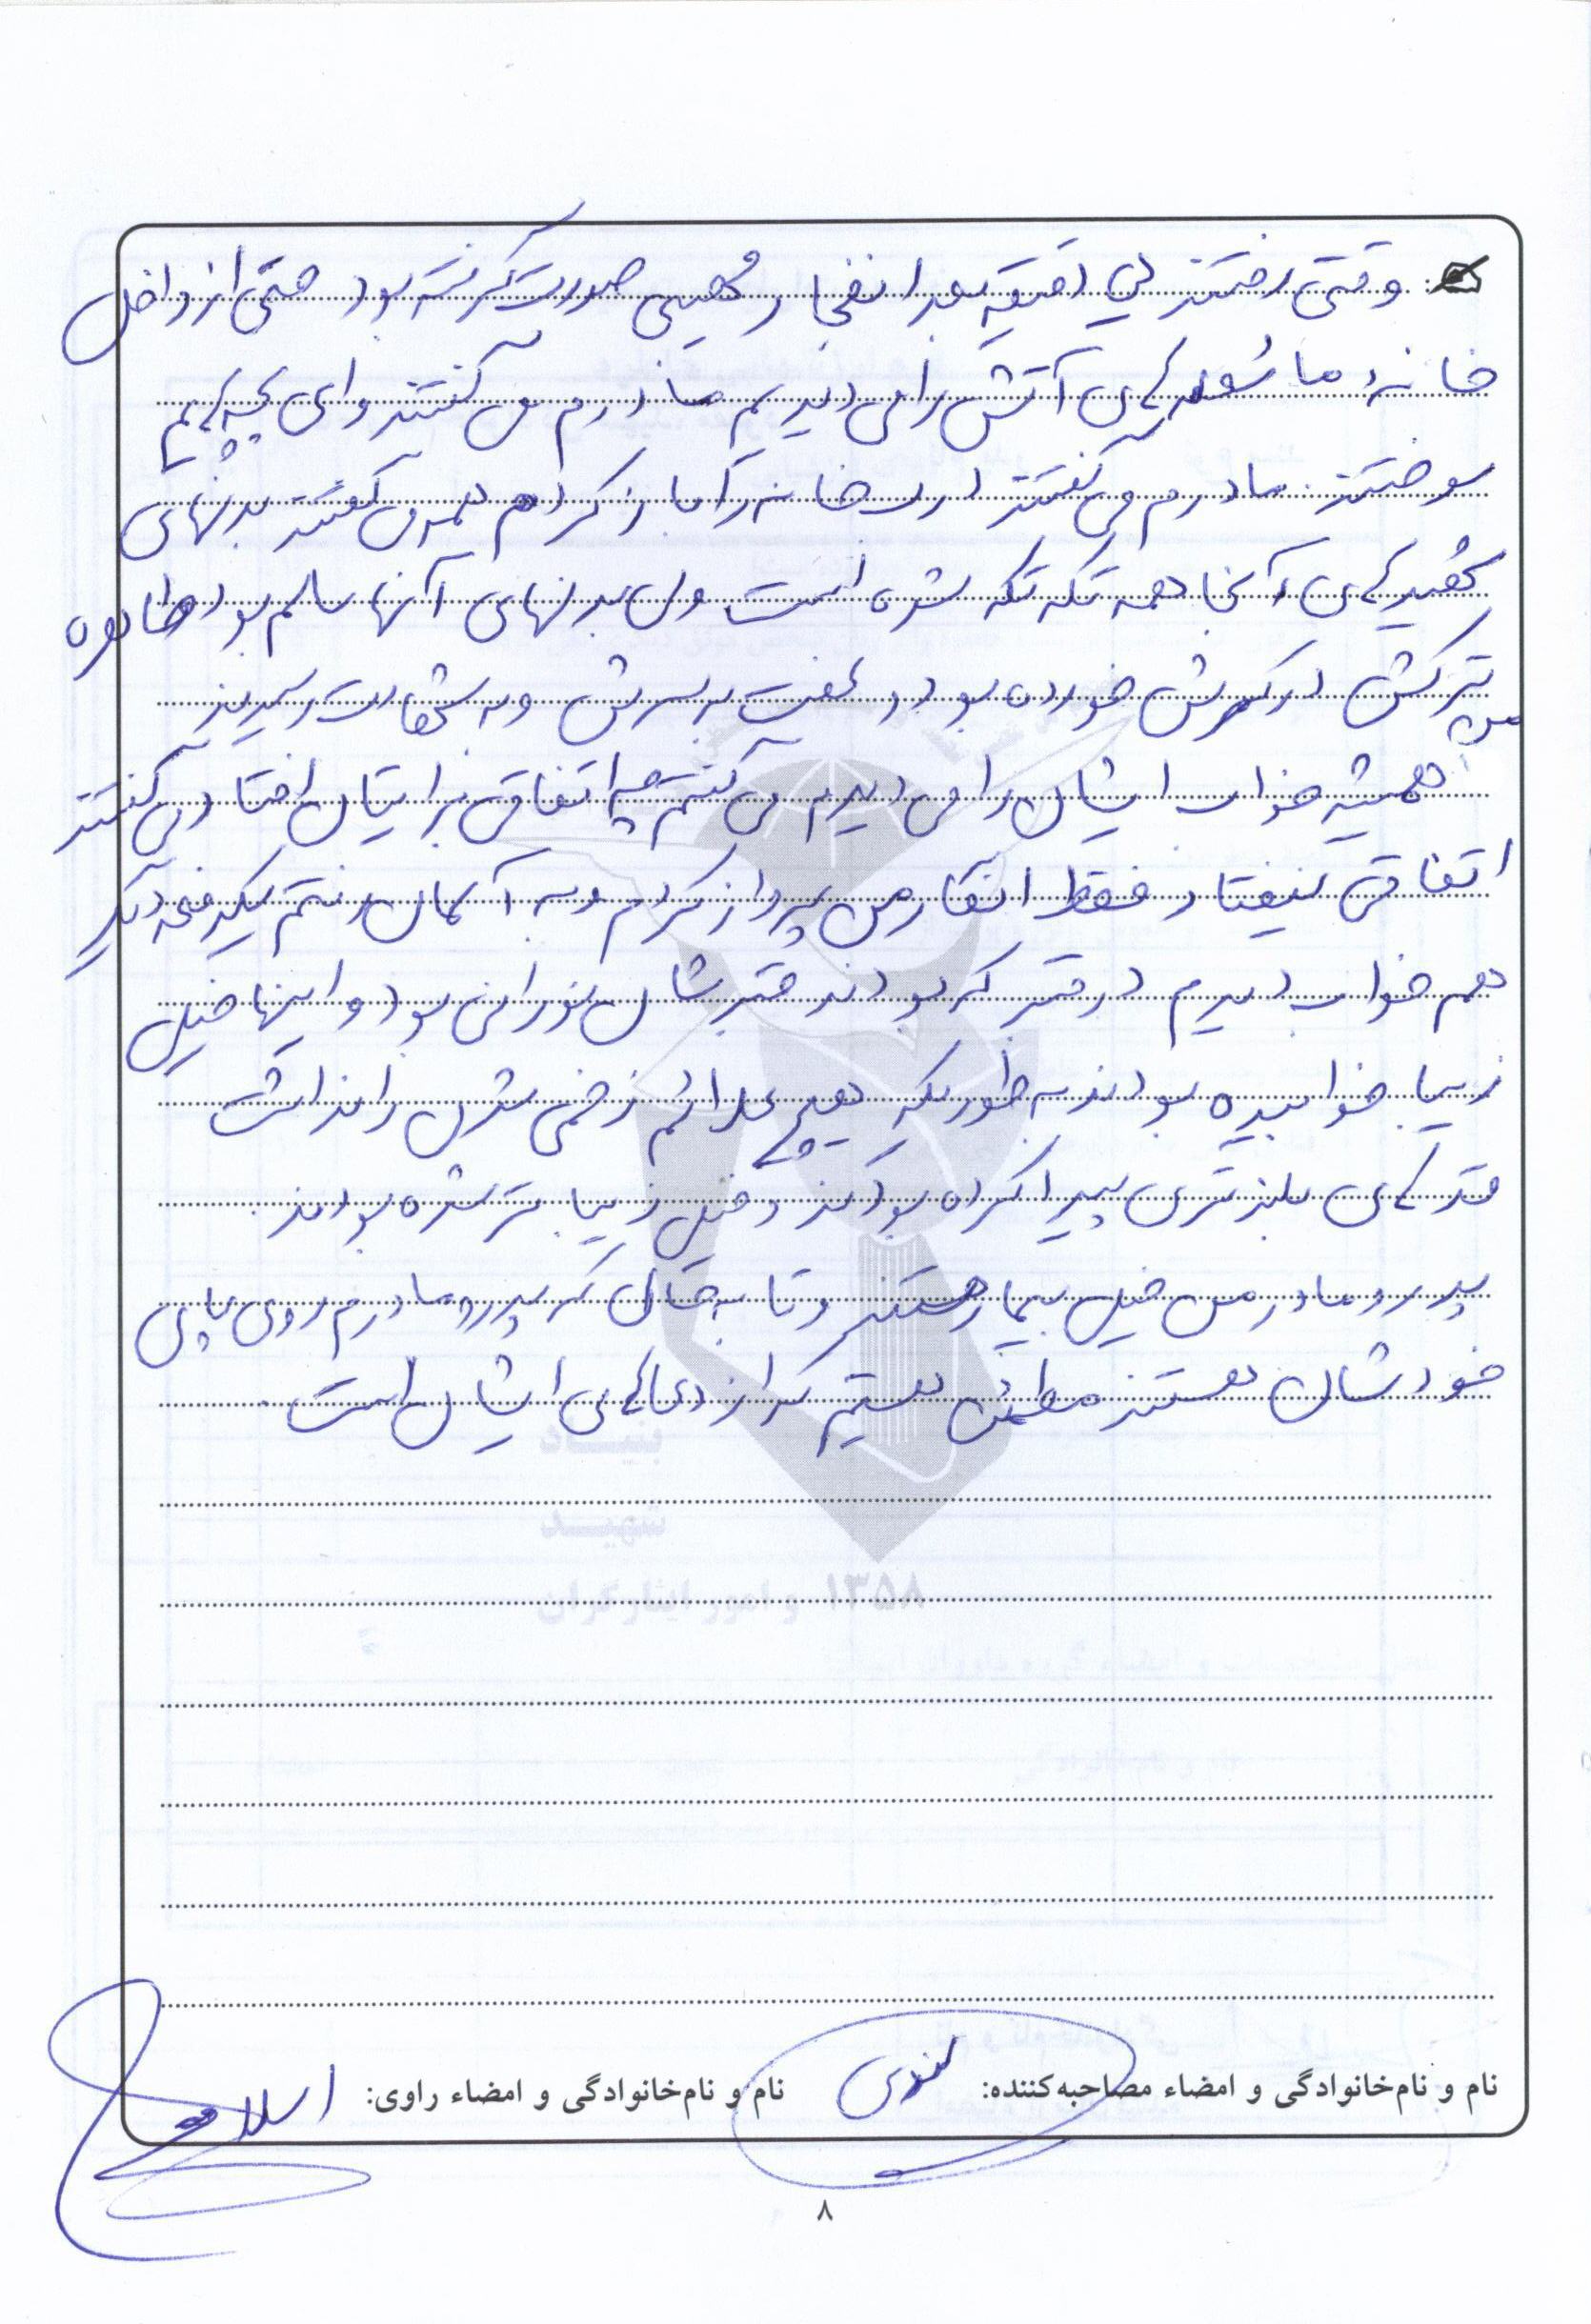 وقتی رفتند سی دقیقه بعد انفجار مهیبی صورت گرفته بود حتی از داخل
خانه ما شعله‌های آتش را می دیدیم مادرم می گفتند وای بچه‌هایم
سوختند. مادرم می گفتند درب خانه را باز کردم همه می گفتند بدنهای
شهیدهای آنجا همه تکه تکه شده است ولی بدنهای آنها سالم بود طاهره
ترکش در کمرش خورده بود و به سرش و به شهادت رسیدند
من همیشه خواب ایشان را می دیدم می گفتم چه اتفاقی برایتان افتاد می گفتند
اتفاقی نیفتاد فقط انگار من پرواز کردم و به آسمان رفتم یکدفعه دیگر
هم خواب دیدم در قبر که بودند قبرشان نورانی بود و اینها خیلی
زیبا خوابیده بودند به طوریکه هیچ علائم زخمی شدن را نداشت
قدهای بلندتری پیدا کرده بودند و خیلی زیباتر شده بودند.
پدر و مادر من خیلی بیمار هستند و تا به حال که پدر و مادرم روی پای
خودشان هستند مطمئن هستیم که از دعاهای ایشان است.
۱۳۵۸
نام و نام‌خانوادگی و امضاء مصاحبه‌کننده: نام و نام‌خانوادگی و امضاء راوی:
۸